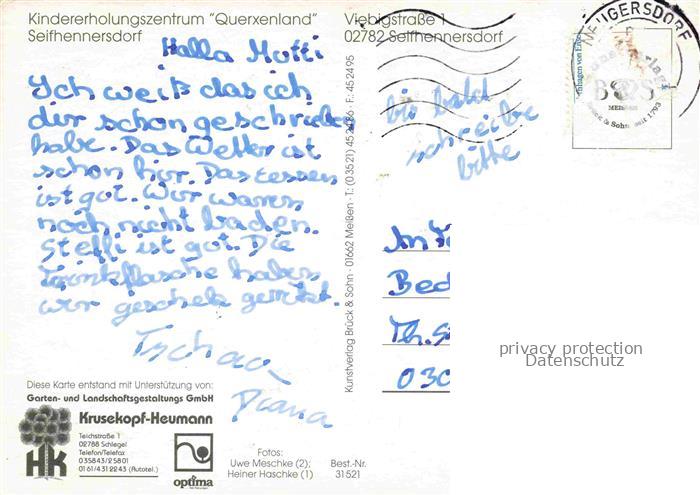 Kindererholungszentrum "Querxenland"
Seifhennersdorf
Viebigstraße 1
02782 Seifhennersdorf
Halla Mutti
Ich weiß das ich
dir schon geschrieben
habe. Das Wetter ist
schon hir. Das essen
ist gut. Wir waren
noch nicht baden.
Steffi ist gut. Die
Trinkflasche haben
wir
Tschau
Diana
bis bald
schreibe
bitte
NEUGERSDORF
B&S
MEISSEN
Brück & Sohn seit 1793
Kunstverlag Brück & Sohn · 01662 Meißen · T: (03521) 452486 · F: 452495
An
Bed
Th.
030
privacy protection
Datenschutz
Diese Karte entstand mit Unterstützung von:
Garten- und Landschaftsgestaltungs GmbH
Krusekopf-Heumann
Teichstraße 1
02788 Schlegel
Telefon/Telefax
035843/25801
0161/4312243 (Autotel.)
HK
optima
Fotos:
Uwe Meschke (2);
Heiner Haschke (1)
Best.-Nr.
31521